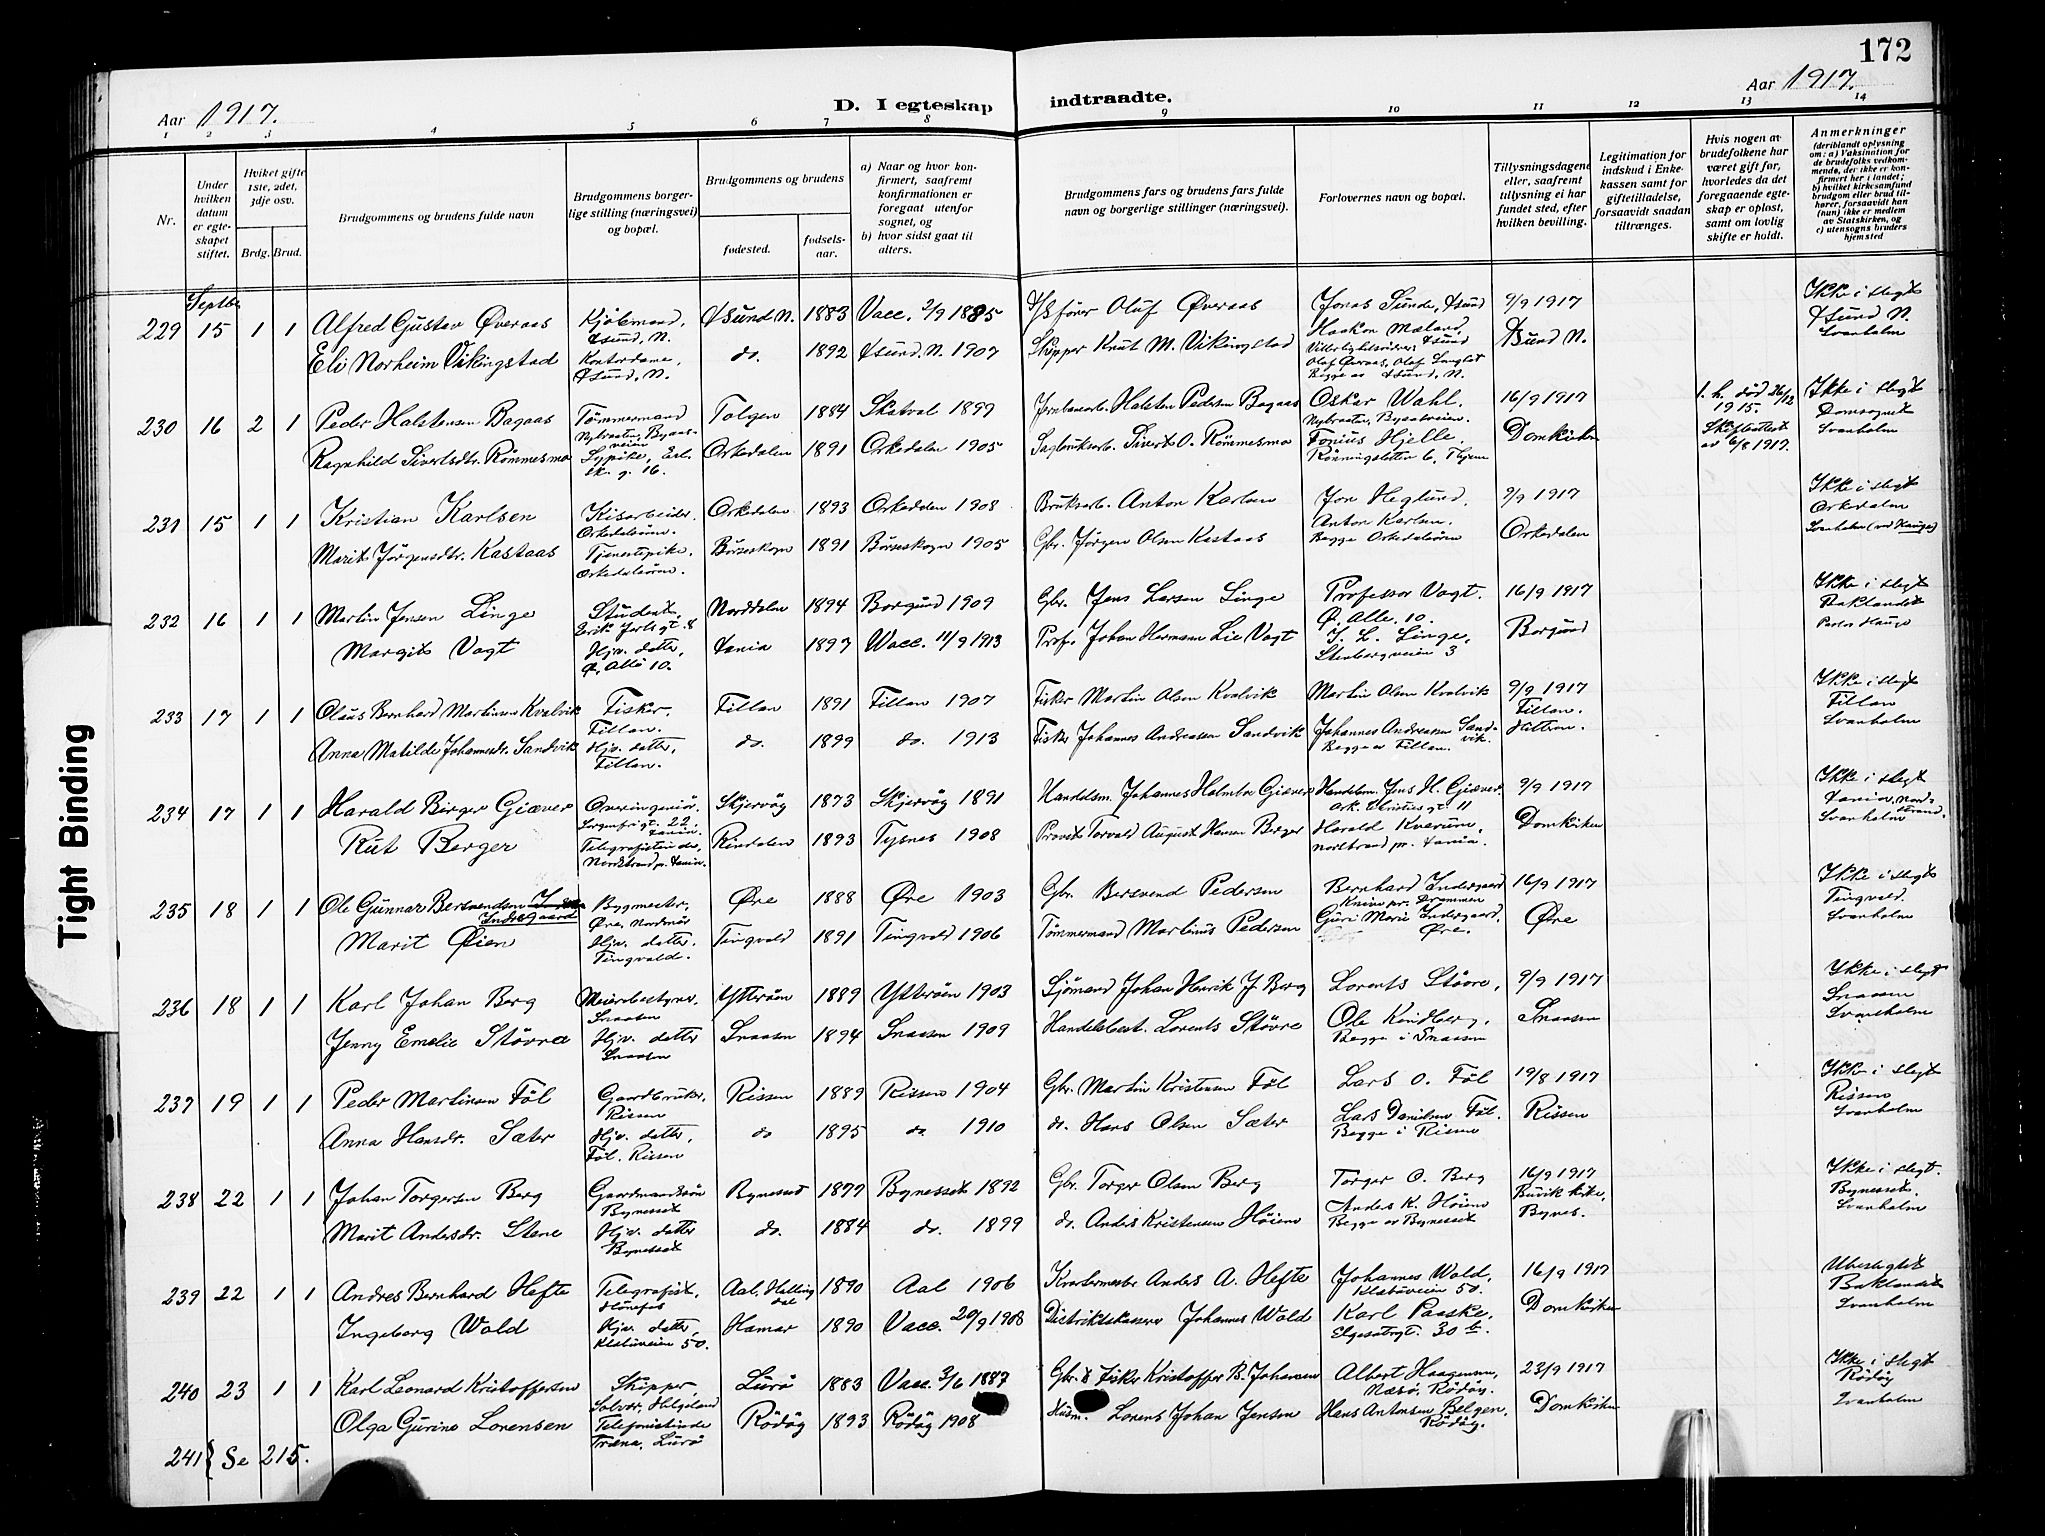 172
Aar 1917.
D. I egteskap indtraadte.
Aar 1917.
1 2 3 4 5 6 7 8 9 10 11 12 13 14
Nr.
Under hvilken datum er egteskapet stiftet.
Hvilket gifte 1ste, 2det, 3dje osv.
Brdg. Brud.
Brudgommens og brudens fulde navn
Brudgommens borgerlige stilling (næringsvei) og bopæl.
Brudgommens og brudens
fødested.
fødselsaar.
a) Naar og hvor konfirmert, saafremt konfirmationen er foregaat utenfor sognet, og
b) hvor sidst gaat til alters.
Brudgommens fars og brudens fars fulde navn og borgerlige stillinger (næringsvei).
Forlovernes navn og bopæl.
Tillysningsdagene eller, saafremt tillysning ei har fundet sted, efter hvilken bevilling.
Legitimation for indskud i Enkekassen samt for giftetilladelse, forsaavidt saadan tiltrænges.
Hvis nogen av brudefolkene har været gift før, hvorledes da det foregaaende egteskap er opløst, samt om lovlig skifte er holdt.
Anmerkninger (deriblandt oplysning om: a) Vaksination for de brudefolks vedkommende, der ikke er konfirmert her i landet; b) hvilket kirkesamfund brudgom eller brud tilhører, forsaavidt han (hun) ikke er medlem av Statskirken, og c) utensogns bruders hjemsted
Septbr
229 15 1 1 Alfred Gustav Øveraas Kjøbmand, Xsund, N. Xsund N. 1883 Vacc. 2/9 1885 D/S fører Oluf Øveraas Jonas Sunde, Xsund 9/9 1917 Ikke i slegt
Eli Norheim Vikingstad Kontordame, Xsund, N. do. 1892 Xsund, N. 1907 Skipper Knut M. Vikingstad Haakon Mæland, Xsund N. Xsund N. Svanholm
Begge av Xsund, N.
230 16 2 1 Peder Halstensen Bagaas Tømmermand Tolgen 1884 Skatval 1899 Jernbanearb. Halsten Pedersen Bagaas Oskar Wahl. 16/9 1917 1. h. død 26/12 1915. Ikke i slegt
Ragnhild Sivertsdtr. Rømmesmo Sypike, Erl. sk. g. 16. Orkedalen 1891 Orkedalen 1905 Sagbruksarb. Sivert O. Rømmesmo Fonius Hjelle. Rønningsletten 6, Thjem Domkirken Skifteattest av 6/8 1917. Domsognet Svanholm
231 15 1 1 Kristian Karlsen Kisarbeider. Orkedalsøren. Orkedalen 1893 Orkedalen 1908 Bruksarb. Anton Karlsen Jon Heglund. 9/9 1917 Ikke i slegt
Marit Jørgensdtr. Kastaas Tjenestepike. Orkedalsøren. Børseskogn 1891 Børseskogn 1905 Gbr. Jørgen Olsen Kastaas Anton Karlsen. Begge Orkedalsøren Orkedalen Orkedalen Svanholm (ved Hauge)
232 16 1 1 Martin Jensen Linge Student, Erik Jarls gt. 8 Norddalen 1894 Borgund 1909 Gbr. Jens Larsen Linge Professor Vogt. Ø. Alle. 10. 16/9 1917 Ikke i slegt
Margit Vogt Hjv. datter, Ø. Allé 10. Xania 1897 Vacc. 11/9 1913 Prof. Johan Herman Lie Vogt J. L. Linge, Stenbergveien 3 Borgund Baklandet Pastor Hauge
233 17 1 1 Olaus Bernhard Martinsen Kvalvik Fisker. Fillan. Fillan 1891 Fillan 1907 Fisker Martin Olsen Kvalvik Martin Olsen Kvalvik 9/9 1917 Fillan. Ikke i slegt
Anna Matilde Johannesdr. Sandvik Hjv. datter, Fillan. do. 1899 do. 1913 Fisker Johannes Andreassen Sandvik Johannes Andreassen Sandvik. Begge av Fillan. Hitteren. Fillan Svanholm
234 17 1 1 Harald Birger Giæver Overingeniør. Sorgenfrigt. 22. Xania. Skjervøy 1873 Skjervøy 1891 Handelsm. Johannes Holmbo Giæver Handelsm. Jens H. Giæver. Ark. Christies gt. 11 9/9 1917 Ikke i slegt
Rut Berger Telegrafistinde, Nordstrand pr. Xania. Rindalen 1893 Tysnes 1908 Provst Torvald August Hansen Berger Harald Kværum, Nordstrand pr. Xania. Domkirken Xania, Nordstrand. Svanholm
235 18 1 1 Ole Gunnar Bersvendsen Indergaard Bygmester, Øre, Nordmør Øre 1888 Øre 1903 Gbr. Bersvend Pedersen Bernhard Indergaard pr. Drammen 16/9 1917 Ikke i slegt
Marit Øien Hjv. datter. Tingvold. Tingvold 1891 Tingvold 1906 Tømmermand Martinus Pedersen Guri Marie Indergaard, Øre. Øre Tingvold. Svanholm
236 18 1 1 Karl Johan Berg Meieribestyrer. Snaasen Ytterøen 1889 Ytterøen 1903 Sjømand Johan Henrik J. Berg Lorents Støvre, 9/9 1917 Ikke i slegt
Jenny Emelie Støvra Hjv. datter Snaasen Snaasen 1894 Snaasen 1909 Handelsbest. Lorents Støvre Ole Kindberg, Begge i Snaasen Snaasen Snaasen Svanholm
237 19 1 1 Peder Martinsen Føl Gaardbruker, Rissen Rissen 1889 Rissen 1904 Gbr. Martin Kristensen Føl Lars O. Føl 19/8 1917 Ikke i slegt
Anna Hansdr. Sæter Hjv. datter, Føl. Rissen do 1895 do. 1910 do. Hans Olsen Sæter Lars Danielsen Føl. Begge i Rissen Rissen Rissen Svanholm
238 22 1 1 Johan Torgersen Berg Gaardmandssøn Bynesset Bynesset 1877 Bynesset 1892 Gbr. Torger Olsen Berg Torger O. Berg 16/9 1917 Ikke i slegt.
Marit Andersdr. Stene Hjv. datter Bynesset do. 1884 do. 1899 do. Anders Kristensen Høiem Anders K. Høiem Begge av Bynesset Buvik kirke, Bynes. Bynesset. Svanholm
239 22 1 1 Andres Bernhard Hefte Telegrafist, Hønefos Aal, Hallingdal 1890 Aal 1906 Kvartermester Anders A. Hefte Johannes Wold, Klæbuveien 50. 16/9 1917 Ubeslegtet
Ingeborg Wold Hjv. datter, Klæbuveien 50. Hamar 1890 Vacc. 20/9 1908 Distriktskasserer Johannes Wold Karl Paaske, Elgesætergt. 30 b. Domkirken Baklandet Svanholm
240 23 1 1 Karl Leonard Kristoffersen Skipper, Solvær, Helgeland Lurø 1883 Vacc. 3/6 1887 Gbr. & Fisker Kristoffer B. Johansen Albert Haagensen, Næsø, Rødøy. 23/9 1917 Ikke i slegt
Olga Gurine Lorensen Telefonistinde Træna, Lurø Rødøy 1893 Rødøy 1908 Husm. Lorens Johan Jensen Hans Antonsen Belgen, Rødøy. Domkirken Rødøy Svanholm
241 { Se 215.
Tight Binding